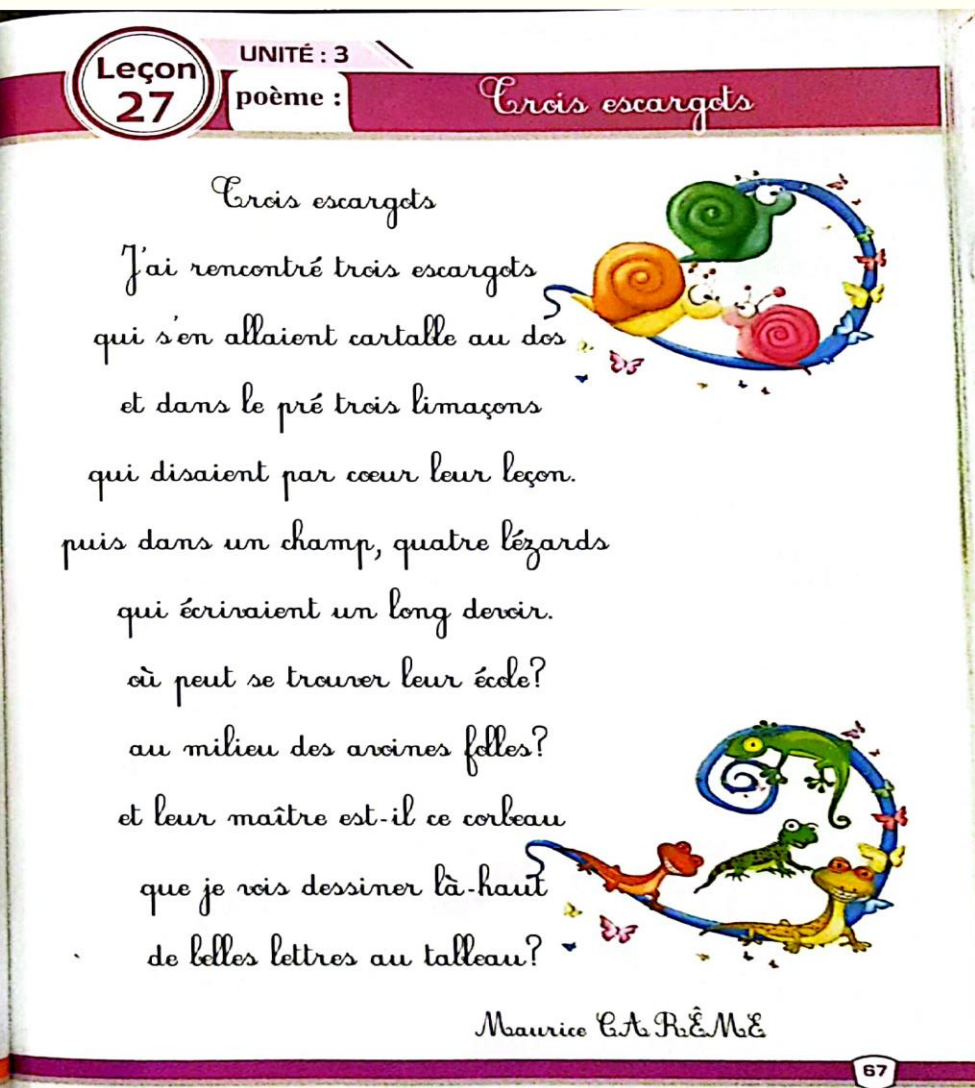 Leçon
27
UNITÉ : 3
poème :
Trois escargots
Trois escargots
J'ai rencontré trois escargots
qui s'en allaient cartalle au dos
et dans le pré trois limaçons
qui disaient par cœur leur leçon.
puis dans un champ, quatre lézards
qui écrivaient un long devoir.
où peut se trouver leur école?
au milieu des avoines folles?
et leur maître est-il ce corbeau
que je vois dessiner là-haut
de belles lettres au talleau?
Maurice CARÊME
67